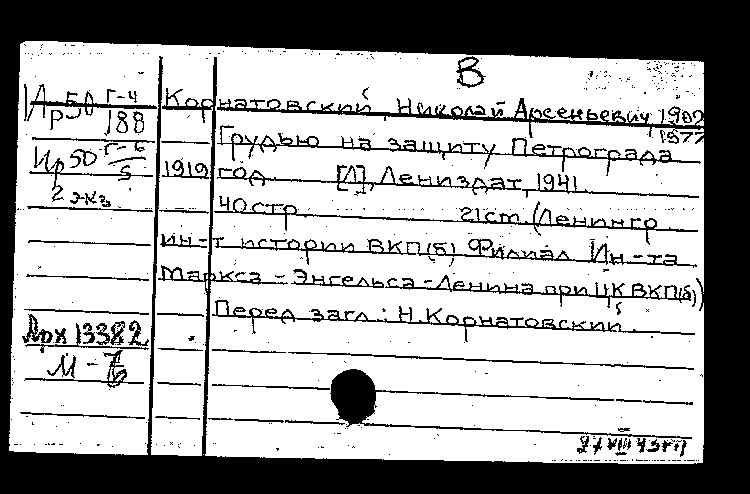 В
Ир50 Г-4/188
Корнатовский, Николай Арсеньевич, 1902
1977
Грудью на защиту Петрограда
Ир50 Г-6/5
1919 год. [Л], Лениздат, 1941.
2 экз
40 стр. 21 см. (Ленингр.
ин-т истории ВКП(б) Филиал Ин-та
Маркса-Энгельса-Ленина при ЦК ВКП(б))
Перед загл.: Н. Корнатовский.
Арх 13382
М-
VIII